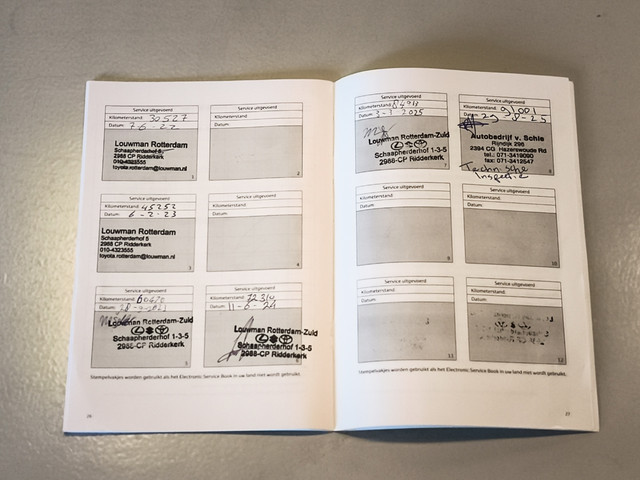 Service uitgevoerd
Kilometerstand: 30527
Datum: 7-6-22
Louwman Rotterdam
Schaapherderhof 5
2988 CP Ridderkerk
010-4323555
toyota.rotterdam@louwman.nl
1
Service uitgevoerd
Kilometerstand:
Datum:
2
Service uitgevoerd
Kilometerstand: 45252
Datum: 6-2-23
Louwman Rotterdam
Schaapherderhof 5
2988 CP Ridderkerk
010-4323555
toyota.rotterdam@louwman.nl
3
Service uitgevoerd
Kilometerstand:
Datum:
4
Service uitgevoerd
Kilometerstand:
Datum:
Louwman Rotterdam-Zuid
Schaapherderhof 1-3-5
2988-CP Ridderkerk
5
Service uitgevoerd
Kilometerstand:
Datum: 11-6-24
Louwman Rotterdam-Zuid
Schaapherderhof 1-3-5
2988-CP Ridderkerk
Stempelvakjes worden gebruikt als het Electronic Service Book in uw land niet wordt gebruikt.
26
Service uitgevoerd
Kilometerstand:
Datum: 3-1-2025
Louwman Rotterdam-Zuid
Schaapherderhof 1-3-5
2988-CP Ridderkerk
7
Service uitgevoerd
Kilometerstand:
Autobedrijf v. Schie
Rijndijk 296
2394 CG Hazerswoude Rd
tel.: 071-3419090
fax: 071-3412547
8
Technische
Inspectie
Service uitgevoerd
Kilometerstand:
Datum:
9
Service uitgevoerd
Kilometerstand:
Datum:
10
Service uitgevoerd
Kilometerstand:
Datum:
11
Service uitgevoerd
Kilometerstand:
Datum:
12
Stempelvakjes worden gebruikt als het Electronic Service Book in uw land niet wordt gebruikt.
27